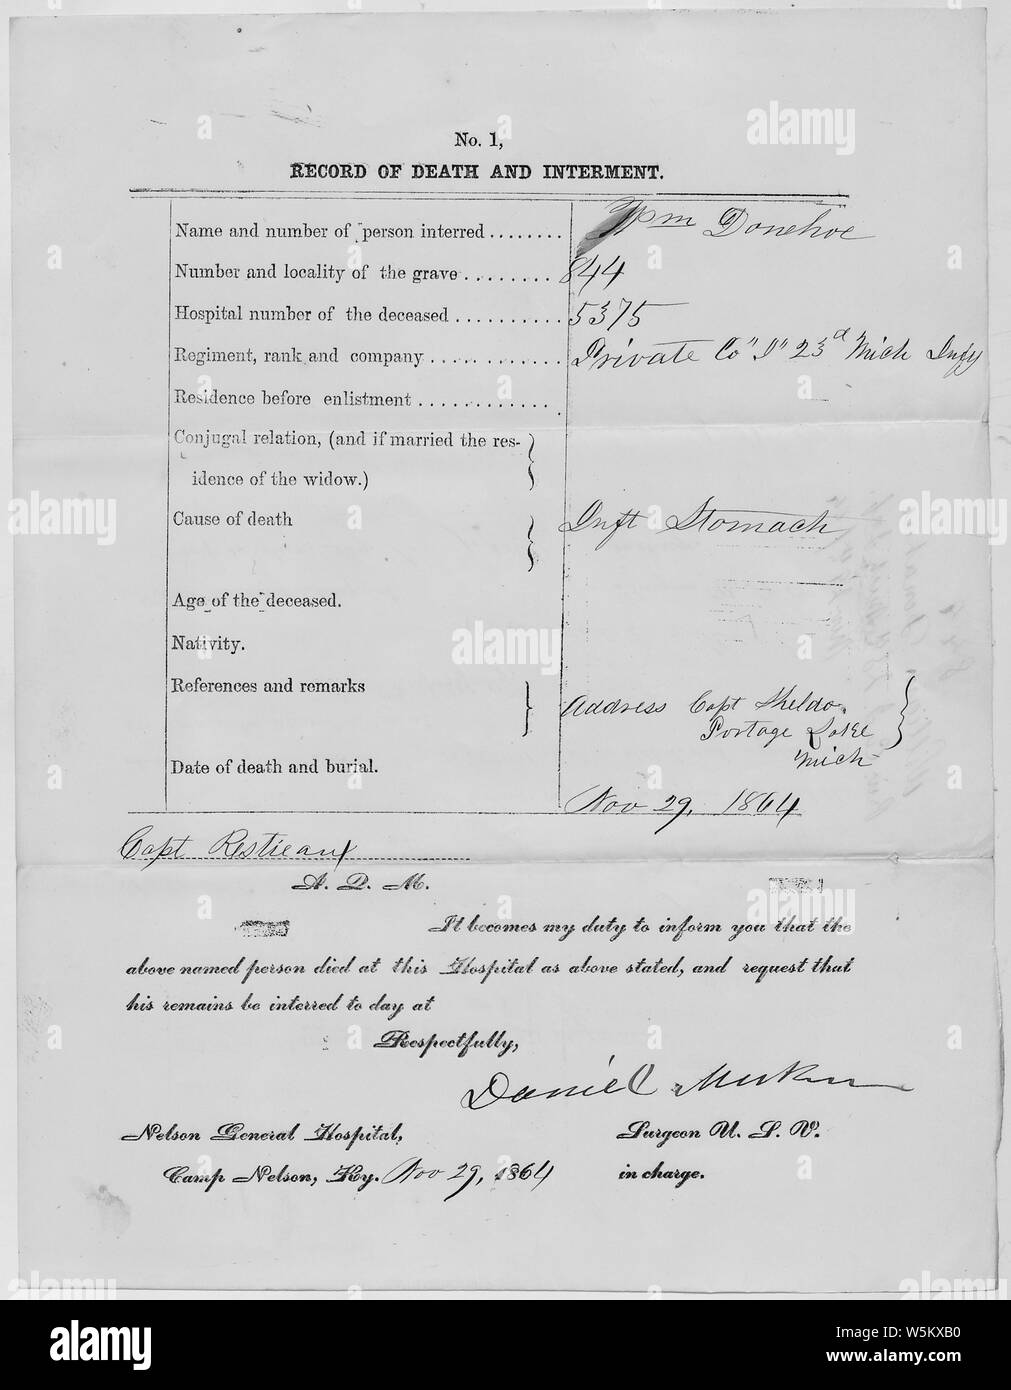 No. 1,
RECORD OF DEATH AND INTERMENT.
Name and number of person interred ........ Wm Donehoe
Number and locality of the grave ........ 844
Hospital number of the deceased .......... 5375
Regiment, rank and company ............. Private Co "I" 23d Mich Infy
Residence before enlistment ............
Conjugal relation, (and if married the res-
idence of the widow.)
Cause of death Inft Stomach
Age of the deceased.
Nativity.
References and remarks Address Capt Sheldo
Portage Lake
Mich
Date of death and burial.
Nov 29, 1864
Capt Restieaux
A. Q. M.
It becomes my duty to inform you that the
above named person died at this Hospital as above stated, and request that
his remains be interred to day at
Respectfully,
Daniel
Nelson General Hospital, Surgeon U. S. V.
Camp Nelson, Ky. Nov 29, 1864 in charge.
alamy
Image ID: W5KXB0
www.alamy.com